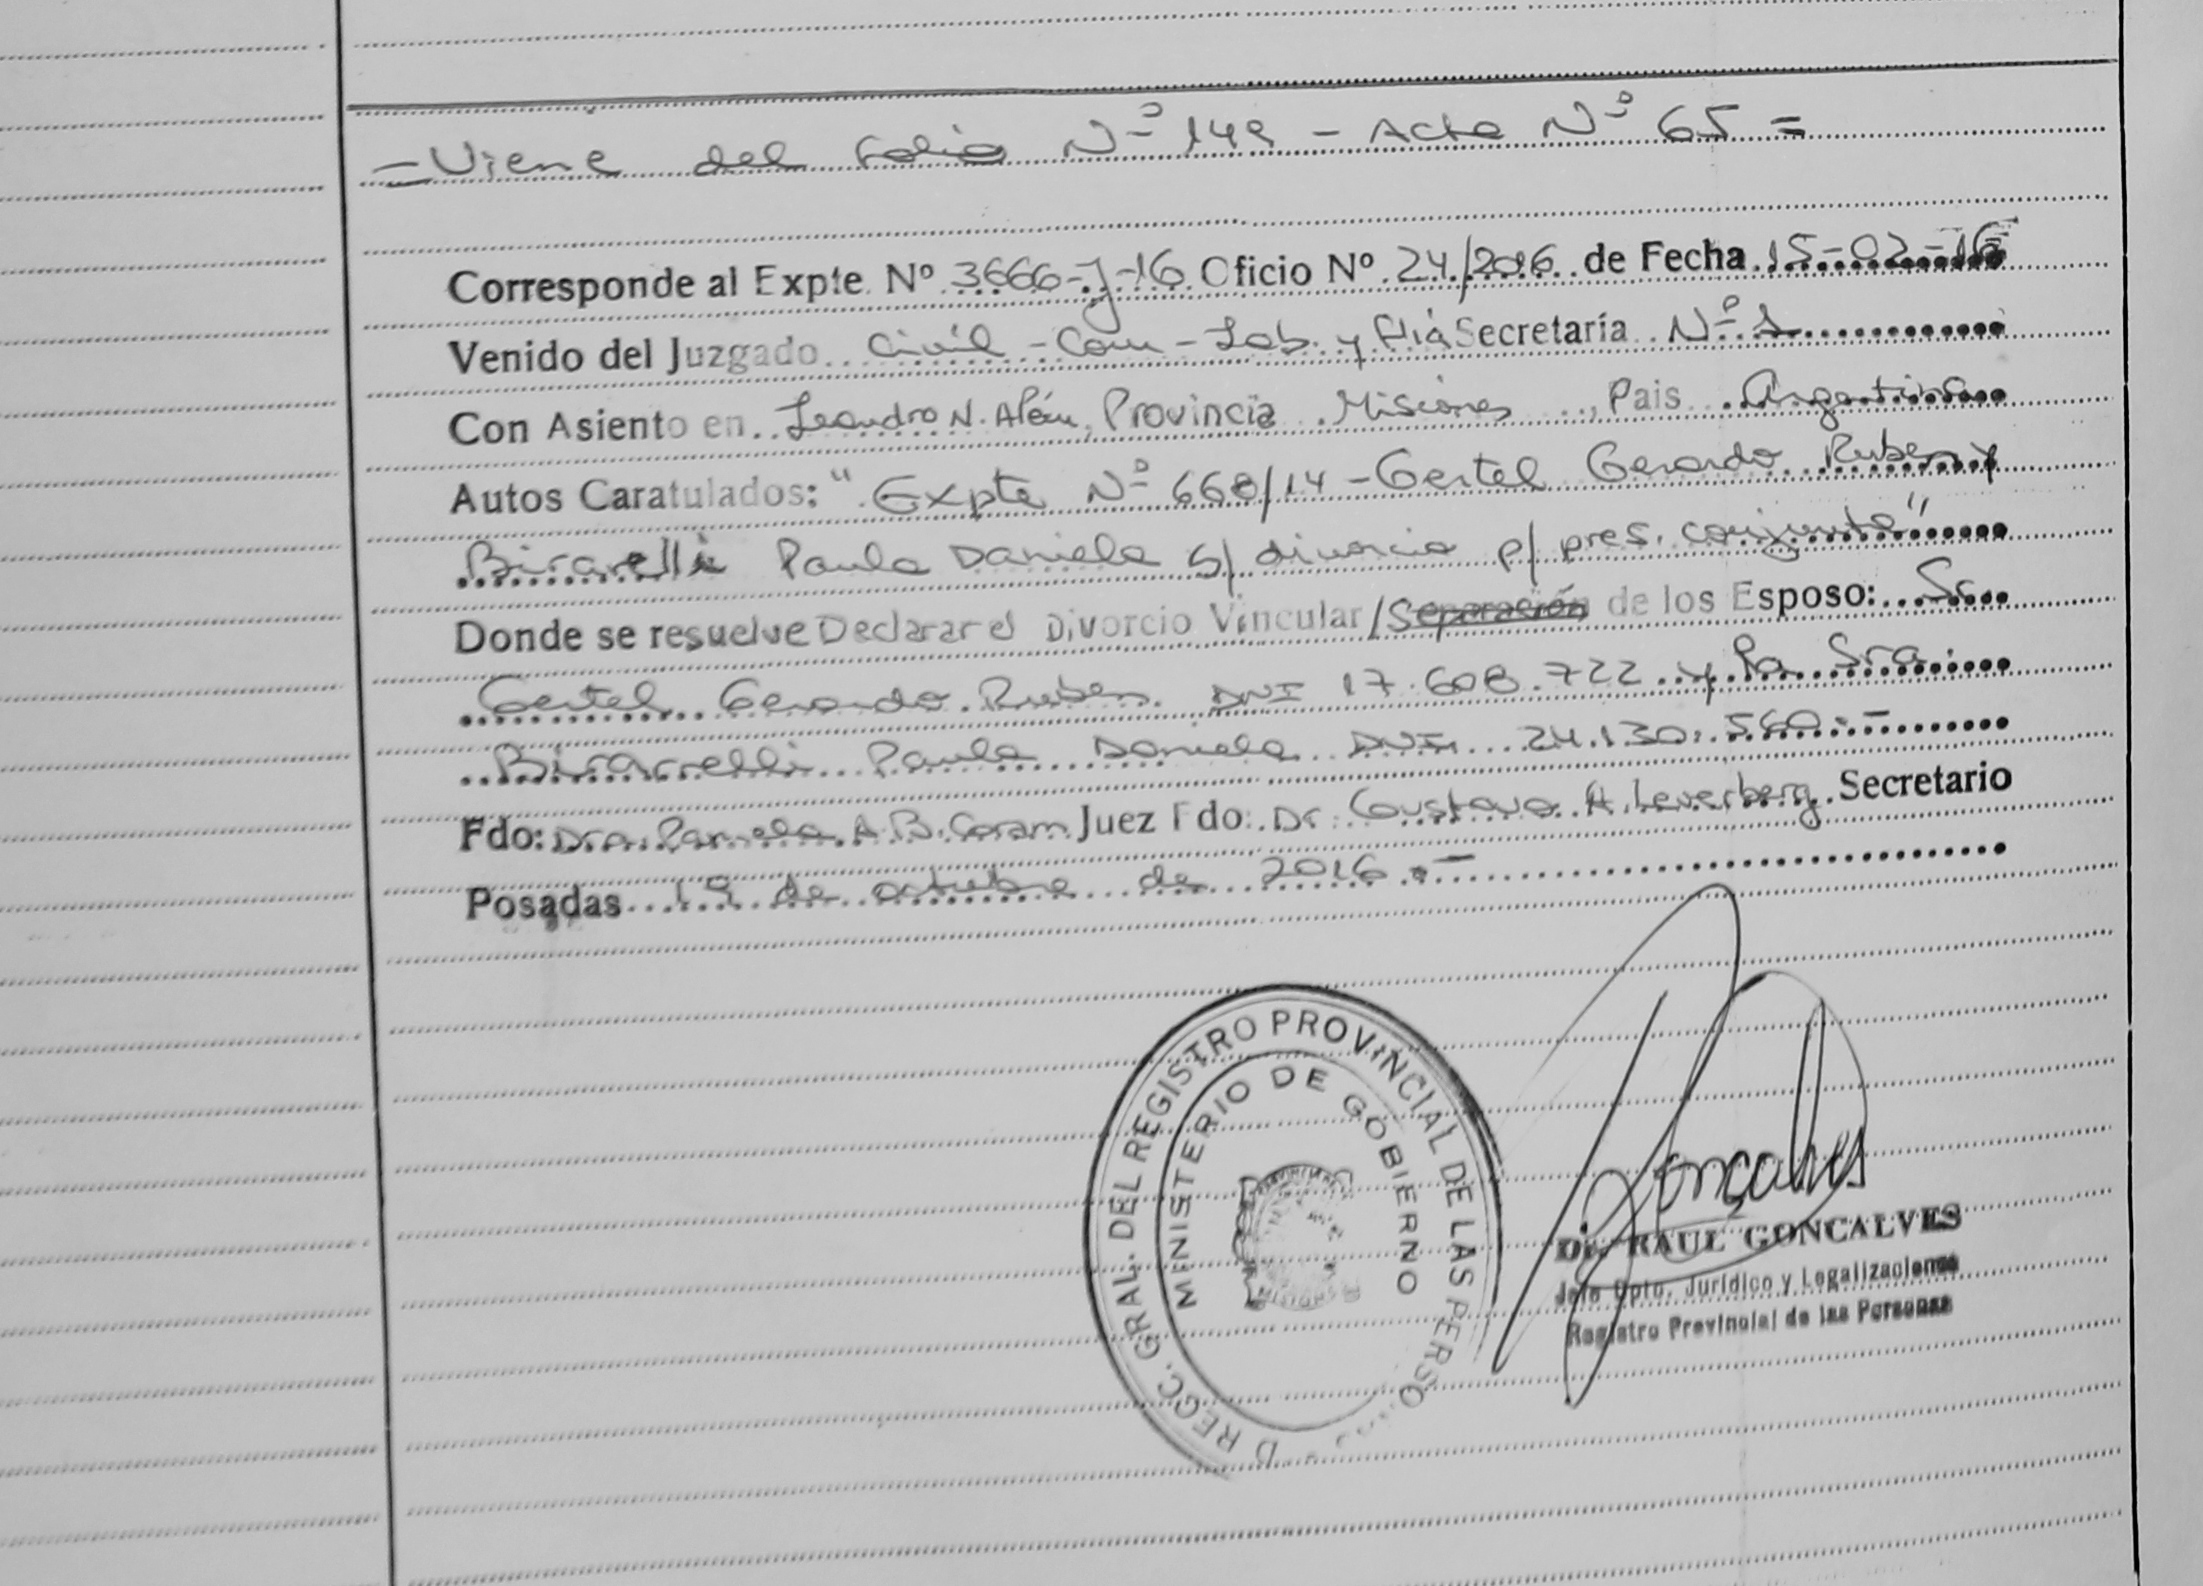 = Viene del folio Nº 149 - Acta Nº 65 =
Corresponde al Expte. Nº 3666-J-16 Oficio Nº 24/2016 de Fecha 15-02-16
Venido del Juzgado Civil - Com - Lab. y Flia Secretaría Nº 1
Con Asiento en Leandro N. Alem, Provincia Misiones, Pais Argentina
Autos Caratulados: " Expte Nº 668/14 - Gertel Gerardo Ruben y
Birarelli Paula Daniela s/ divorcio p/ pres. conjunta"
Donde se resuelve Declarar el Divorcio Vincular/Separación de los Esposo: Sr.
Gertel Gerardo Ruben DNI 17.608.722 y la Sra.
Birarrelli Paula Daniela DNI. 24.130.560.-
Fdo: Dra. Pamela A. B. Juez Fdo: Dr. Gustavo A. Leverberg Secretario
Posadas 19 de octubre de 2016.-
REGC. GRAL. DEL REGISTRO PROVINCIAL DE LAS PERSO
MINISTERIO DE GOBIERNO
Goncalves
Dr. RAUL GONCALVES
Jefe Dpto. Jurídico y Legalizaciones
Registro Provincial de las Personas